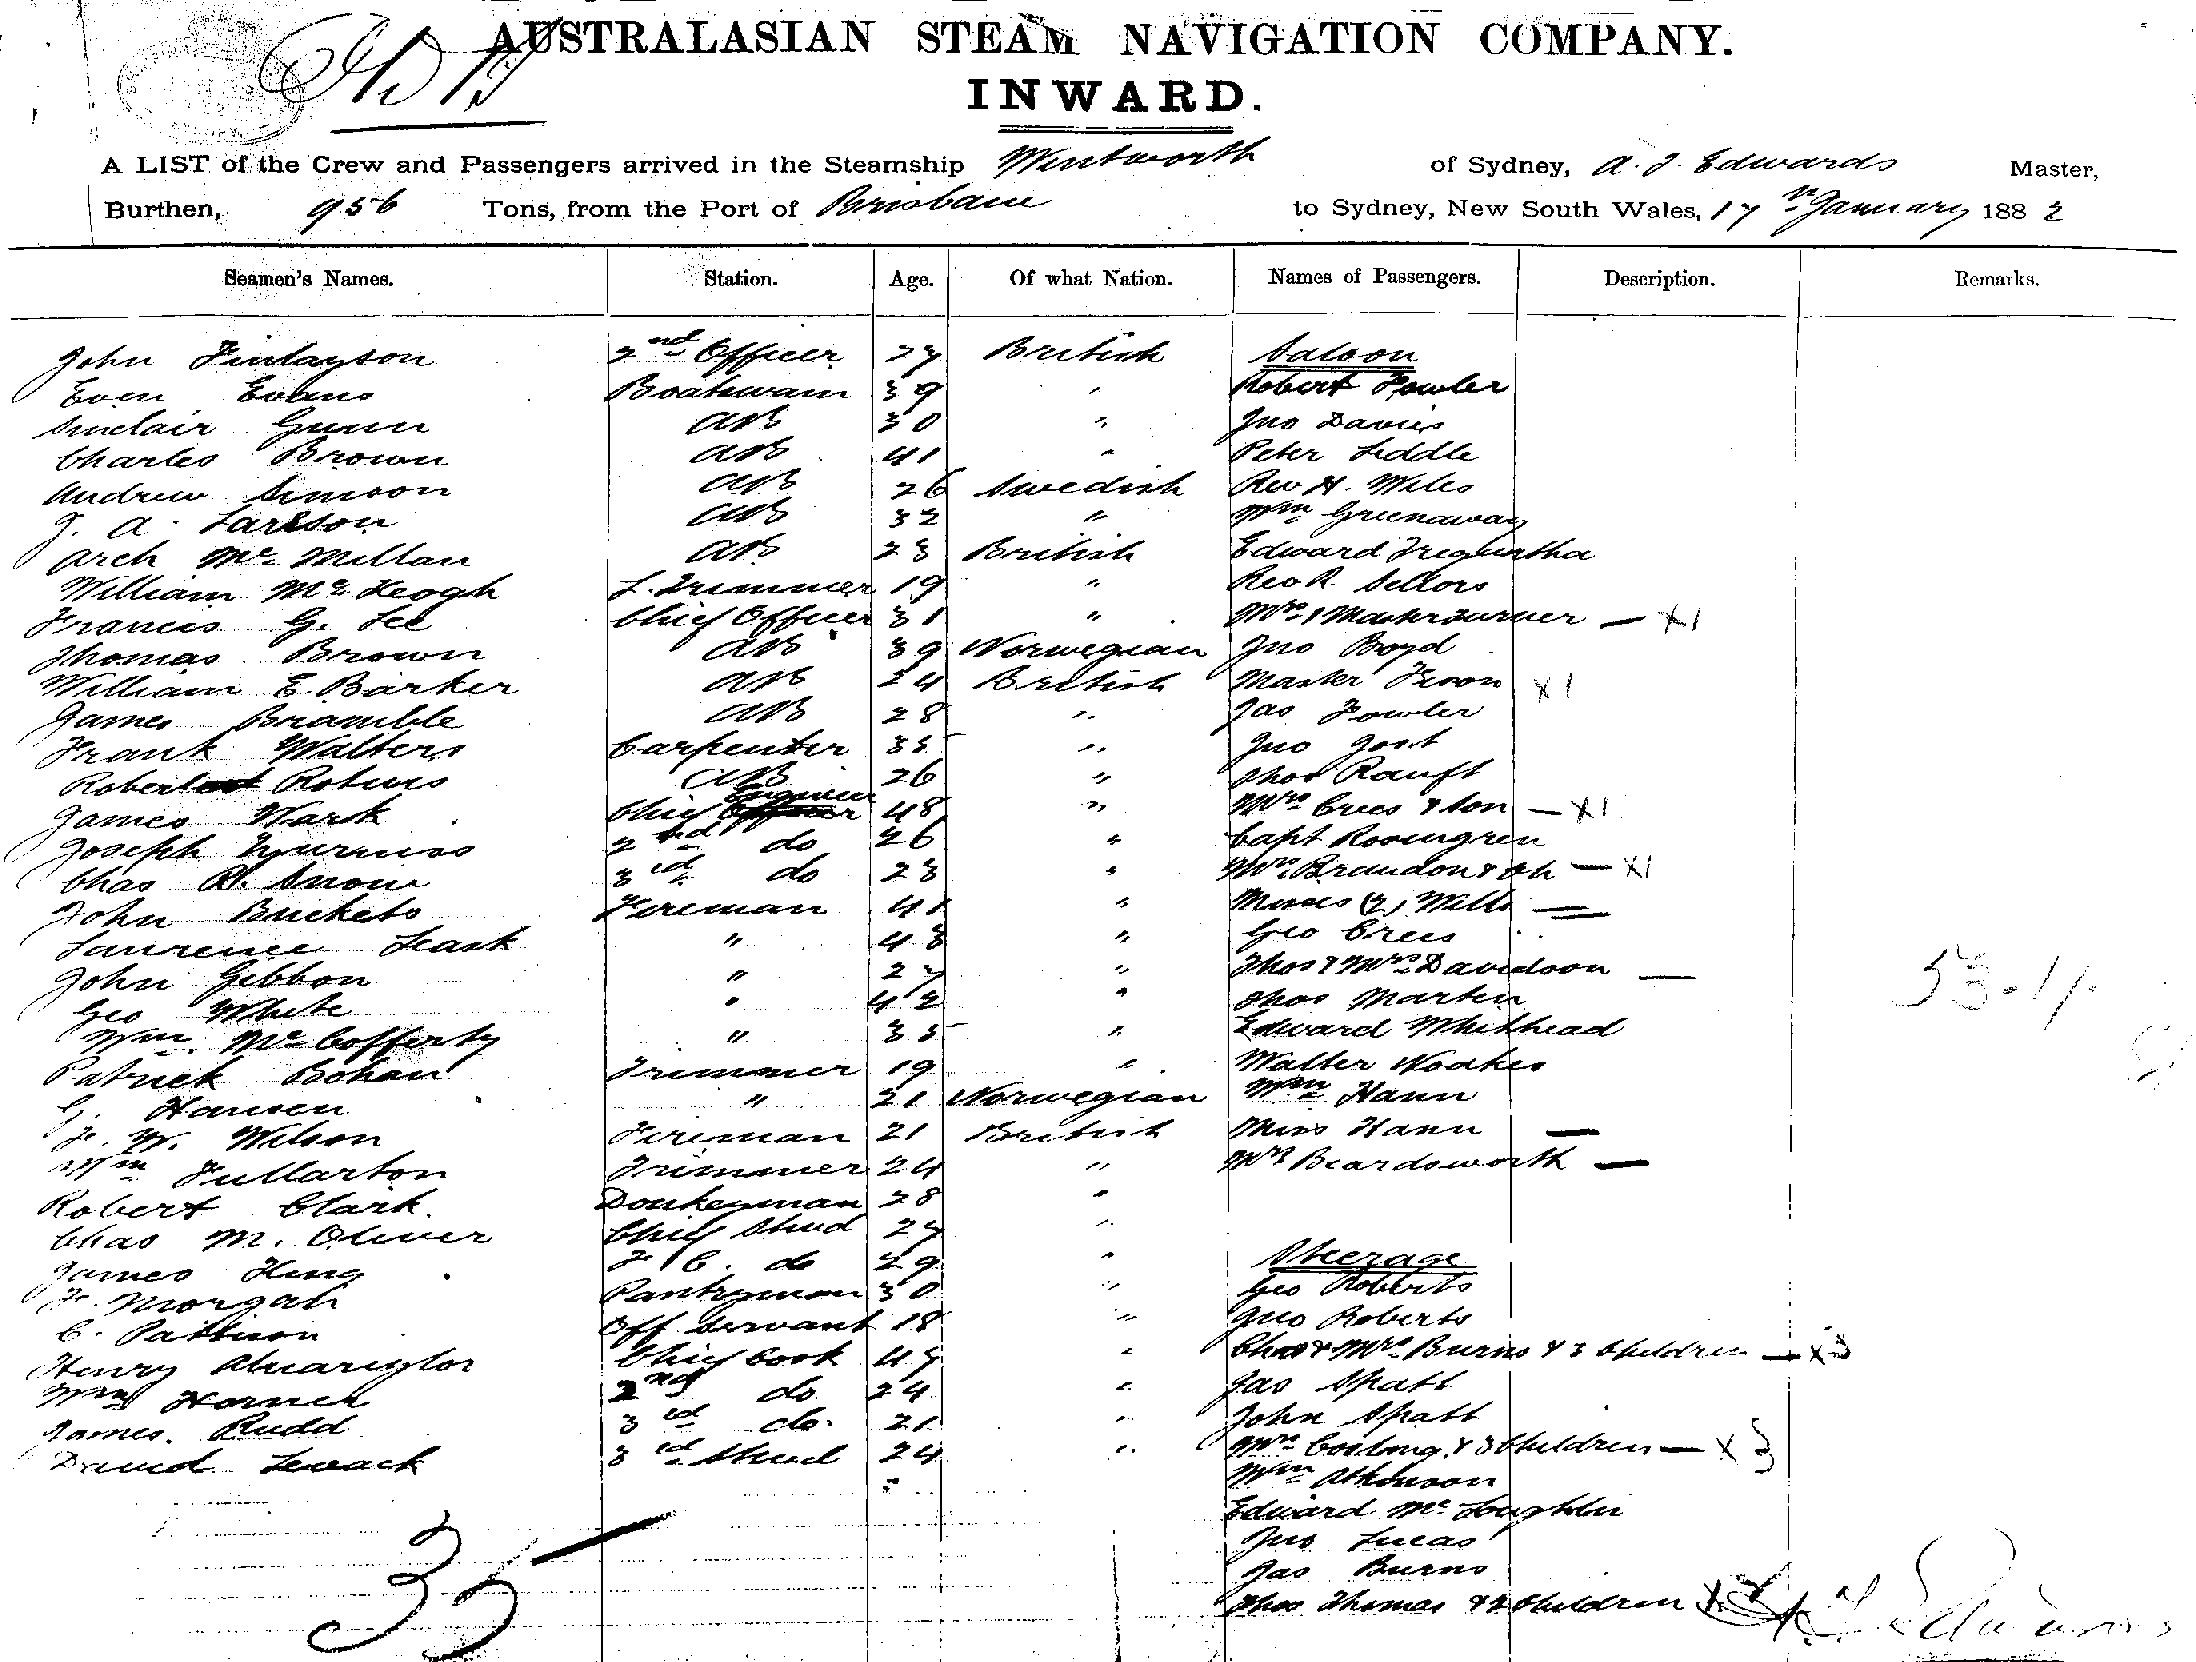 AUSTRALASIAN STEAM NAVIGATION COMPANY.
INWARD.
A LIST of the Crew and Passengers arrived in the Steamship Wentworth of Sydney, A. J. Edwards Master,
Burthen, 956 Tons, from the Port of Brisbane to Sydney, New South Wales, 17th January 1882
Seamen's Names. Station. Age. Of what Nation. Names of Passengers. Description. Remarks.
John Finlayson 2nd Officer 27 British Saloon
Even Evans Boatswain 39 " Robert Fowler
Sinclair Gunn AB 30 " Jno Davies
Charles Brown AB 41 " Peter Liddle
Andrew Simson AB 26 Swedish Rev H. Miles
J. A. Larsson AB 32 " Wm Greenaway
Arch Mc Millan AB 23 British Edward Tregurtha
William Mc Keogh L. Trimmer 19 " Rev R Sellors
Francis G. Lee Chief Officer 31 " Mrs & Master Turner — X1
Thomas Brown AB 39 Norwegian Jno Boyd
William E. Barker AB 24 British Master X1
James Bramble AB 28 " Jas Fowler
Frank Walters Carpenter 35 " Jno Jost
Robert Robins AB 26 " Thos Rauft
James Wark Chief Engineer 48 " Mrs Crees & Son — X1
Joseph 2nd do 26 " Capt Rosengren
Chas H. Snow 3rd do 23 " Mrs Brandon & Ch — X1
John Buckets Fireman 41 " Misses (2) Mills
Laurence Leask " 43 " Geo Crees
John Gibbon " 27 " Thos & Mrs Davidson —
Geo White " 42 " Thos Martin
Wm. Mc Cofferty " 35 " Edward Whithead
Patrick Bohan Trimmer 19 " Walter Noakes
G. Hansen " 21 Norwegian Wm Hann
F. W. Wilson Fireman 21 British Miss Hann —
Wm Fullarton Trimmer 24 " Mrs Beardsworth —
Robert Clark. Donkeyman 28 "
Chas M. Oliver Chief Stewd 27 "
James King F C. do 29 " Steerage
F. Morgan Pantryman 30 " Geo Roberts
C. Pattison Off. Servant 18 " Jno Roberts
Henry Chief Cook 47 " Chas & Mrs Burns & 3 Children — X3
Wm Hornch 2nd do 24 " Jas Spatt
James. Rudd 3rd do. 21 " John Spatt
David Lewack 3rd Stewd 24 " Mrs & 3 Children — X 3
Wm Atkinson
Edward Mc Loughlin
Jno Lucas
Jas Burns
Thos Thomas & 2 Children
35
53.11.